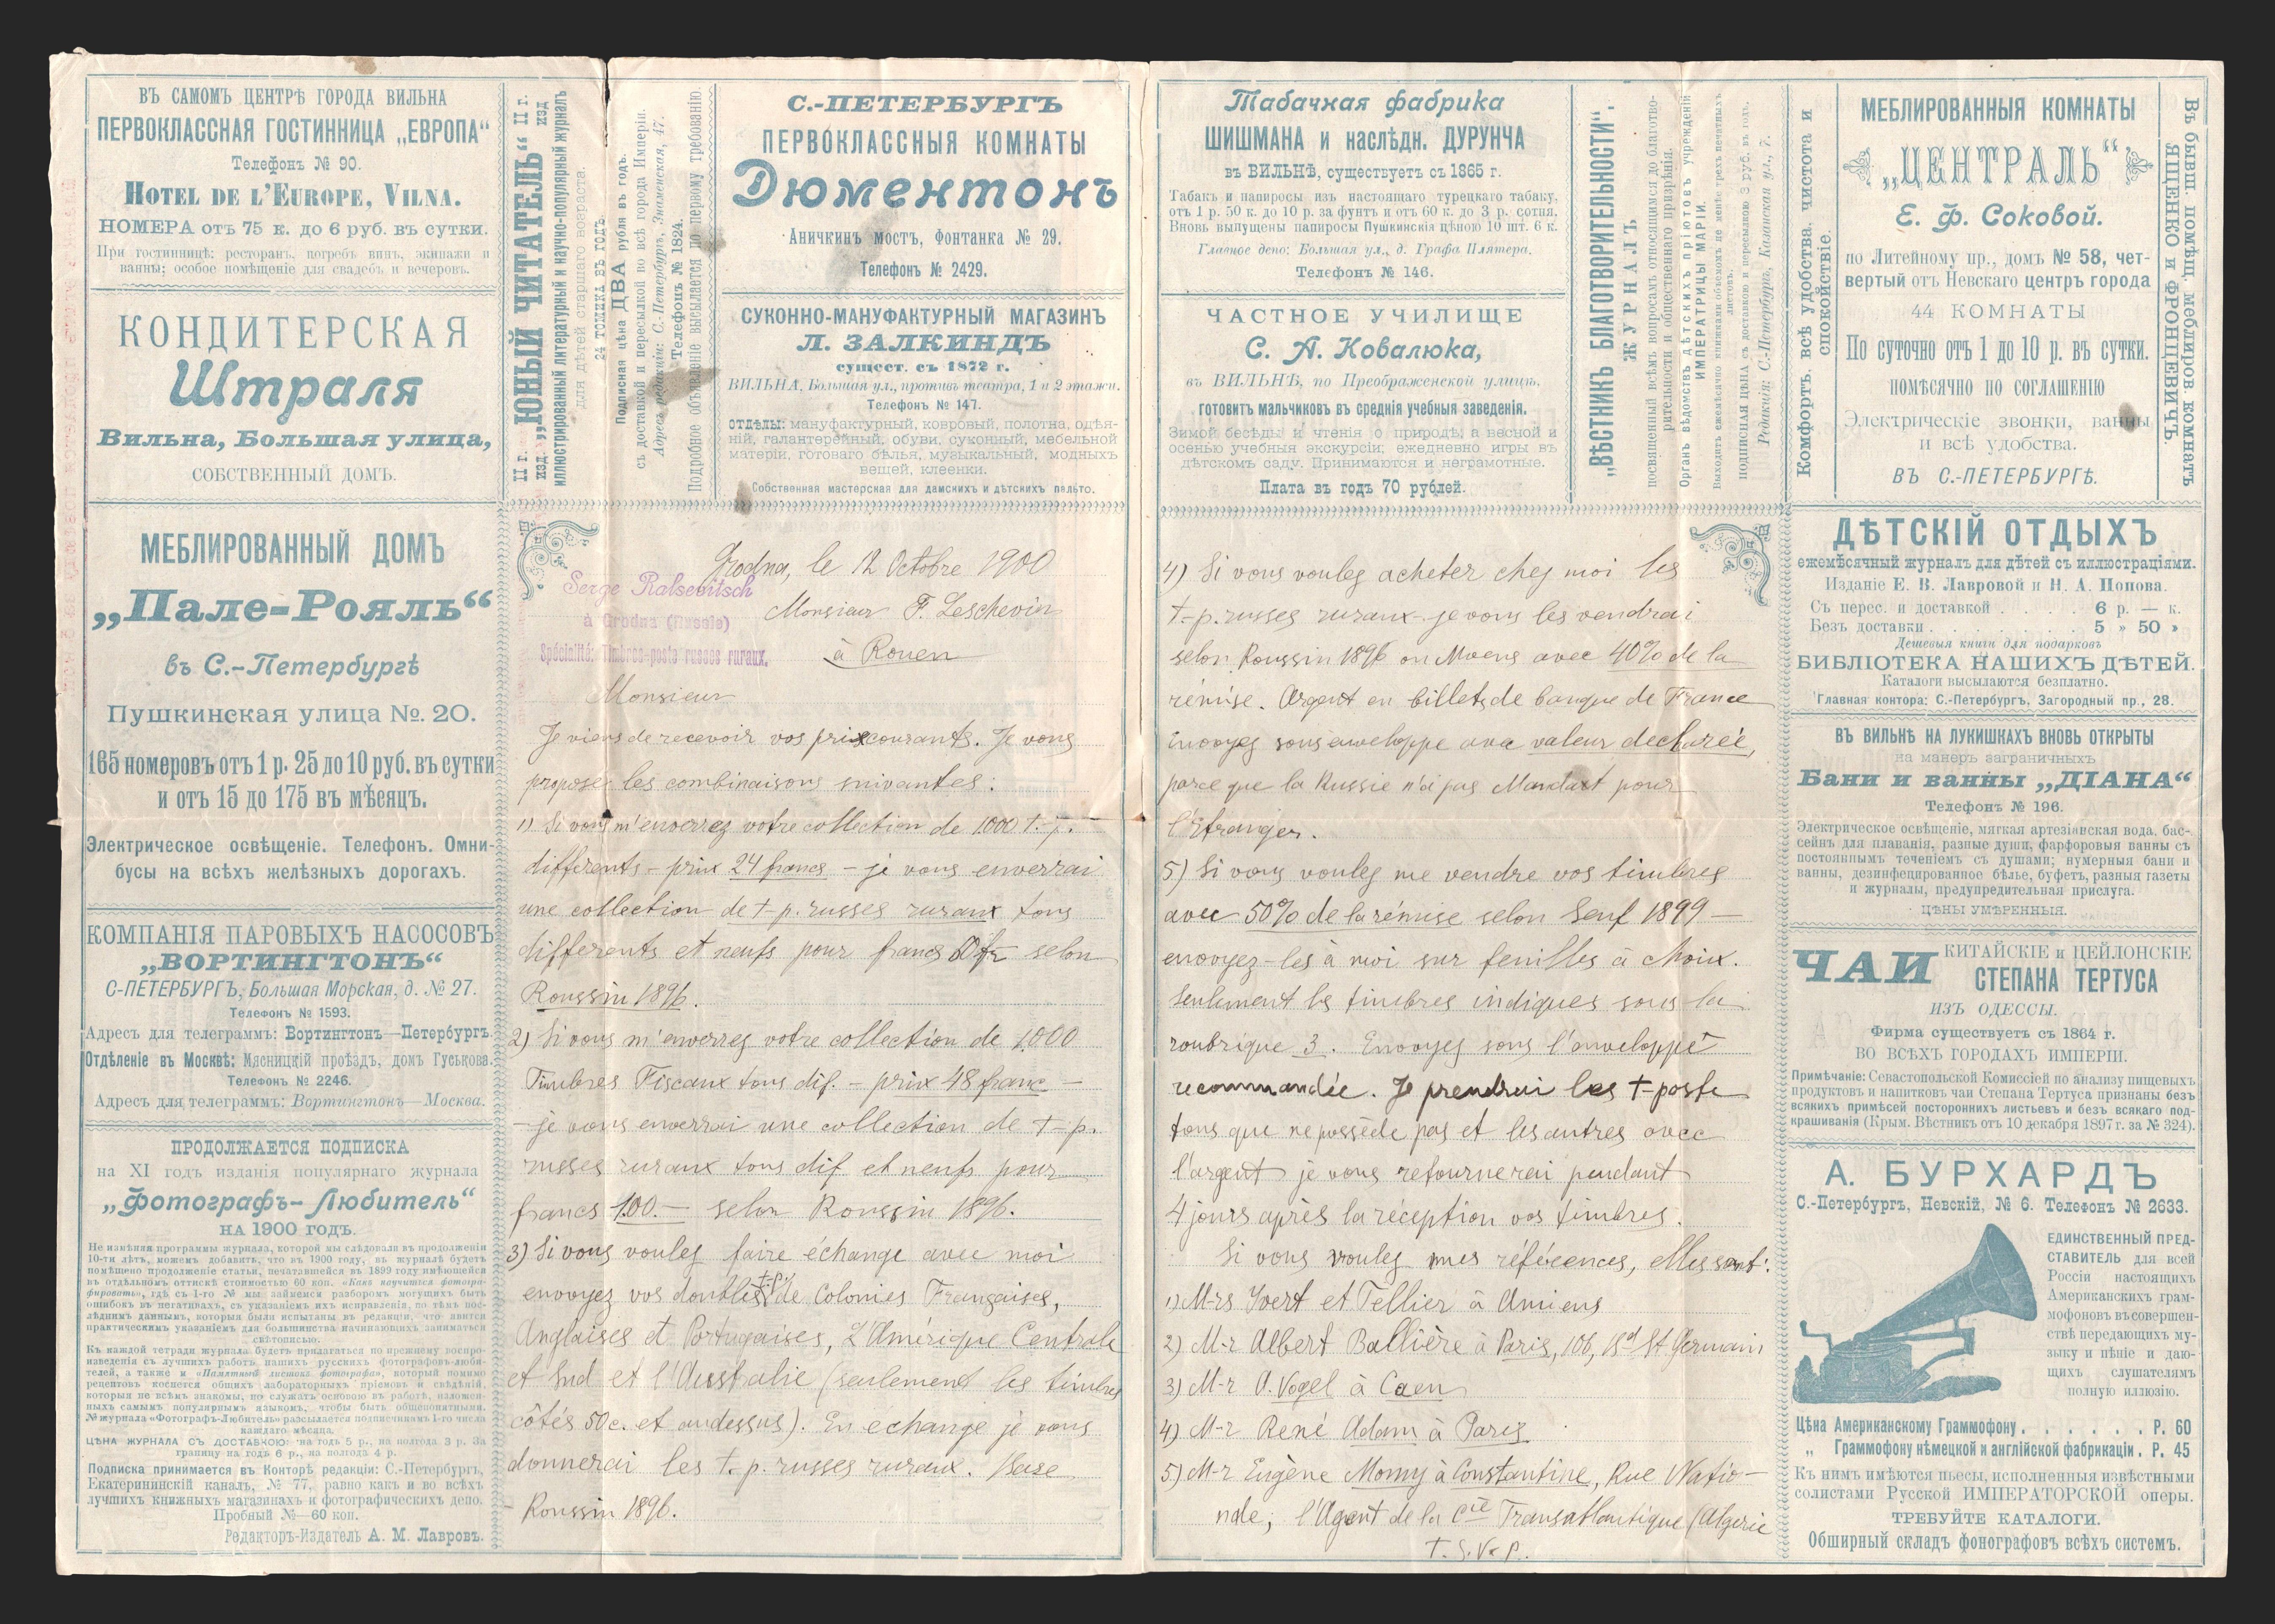 ВЪ САМОМЪ ЦЕНТРѢ ГОРОДА ВИЛЬНА
ПЕРВОКЛАССНАЯ ГОСТИННИЦА „ЕВРОПА“
Телефонъ № 90.
HOTEL DE L'EUROPE, VILNA.
НОМЕРА отъ 75 к. до 6 руб. въ сутки.
При гостинницѣ: ресторанъ, погребъ винъ, экипажи и
ванны; особое помѣщеніе для свадебъ и вечеровъ.
КОНДИТЕРСКАЯ
Штраля
Вильна, Большая улица,
СОБСТВЕННЫЙ ДОМЪ.
МЕБЛИРОВАННЫЙ ДОМЪ
„Пале-Рояль“
въ С.-Петербургѣ
Пушкинская улица №. 20.
165 номеровъ отъ 1 р. 25 до 10 руб. въ сутки
и отъ 15 до 175 въ мѣсяцъ.
Электрическое освѣщеніе. Телефонъ. Омни-
бусы на всѣхъ желѣзныхъ дорогахъ.
КОМПАНІЯ ПАРОВЫХЪ НАСОСОВЪ
„ВОРТИНГТОНЪ“
С-ПЕТЕРБУРГЪ, Большая Морская, д. № 27.
Телефонъ № 1593.
Адресъ для телеграммъ: Вортингтонъ—Петербургъ.
Отдѣленіе въ Москвѣ: Мясницкій проѣздъ, домъ Гуськова.
Телефонъ № 2246.
Адресъ для телеграммъ: Вортингтонъ—Москва.
ПРОДОЛЖАЕТСЯ ПОДПИСКА
на XI годъ изданія популярнаго журнала
„Фотографъ-Любитель“
НА 1900 ГОДЪ.
Не измѣняя программы журнала, которой мы слѣдовали въ продолженіи
10-ти лѣтъ, можемъ добавить, что въ 1900 году, въ журналѣ будетъ
помѣщено продолженіе статьи, печатавшейся въ 1899 году имѣющейся
въ отдѣльномъ оттискѣ стоимостью 60 коп. «Какъ научиться фотогра-
фировать», гдѣ съ 1-го № мы займемся разборомъ могущихъ быть
ошибокъ въ негативахъ, съ указаніемъ ихъ исправленія, по тѣмъ пос-
лѣднимъ даннымъ, которыя были испытаны въ редакціи, что явится
практическимъ указаніемъ для большинства начинающихъ заниматься
свѣтописью.
Къ каждой тетради журнала будетъ прилагаться по прежнему воспро-
изведенія съ лучшихъ работъ нашихъ русскихъ фотографовъ-люби-
телей, а также и «Памятный листокъ фотографа», который помимо
рецептовъ коснется общихъ лабораторныхъ пріемовъ и свѣдѣній,
которыя не всѣмъ знакомы, но служатъ основою въ работѣ, изложен-
ныхъ самымъ популярнымъ языкомъ, чтобы быть общепонятными.
№ журнала «Фотографъ-Любитель» разсылается подписчикамъ 1-го числа
каждаго мѣсяца.
ЦѢНА ЖУРНАЛА СЪ ДОСТАВКОЮ: на годъ 5 р., на полгода 3 р. За
границу на годъ 6 р., на полгода 4 р.
Подписка принимается въ Конторѣ редакціи: С.-Петербургъ,
Екатерининскій каналъ, № 77, равно какъ и во всѣхъ
лучшихъ книжныхъ магазинахъ и фотографическихъ депо.
Пробный №—60 коп.
Редакторъ-Издатель А. М. Лавровъ.
II г. изд. „ЮНЫЙ ЧИТАТЕЛЬ“ II г. изд
ИЛЛЮСТРИРОВАННЫЙ ЛИТЕРАТУРНЫЙ И НАУЧНО-ПОПУЛЯРНЫЙ ЖУРНАЛЪ
для дѣтей старшаго возраста.
24 ТОМИКА ВЪ ГОДЪ.
Подписная цѣна ДВА рубля въ годъ.
съ доставкой и пересылкой во всѣ города Имперіи.
Адресъ редакціи: С.-Петербургъ, Знаменская, 47.
Телефонъ № 1824.
Подробное объявленіе высылается по первому требованію.
С.-ПЕТЕРБУРГЪ
ПЕРВОКЛАССНЫЯ КОМНАТЫ
Дюментонъ
Аничкинъ мостъ, Фонтанка № 29.
Телефонъ № 2429.
СУКОННО-МАНУФАКТУРНЫЙ МАГАЗИНЪ
Л. ЗАЛКИНДЪ
сущест. съ 1872 г.
ВИЛЬНА, Большая ул., противъ театра, 1 и 2 этажи.
Телефонъ № 147.
ОТДѢЛЫ: мануфактурный, ковровый, полотна, одѣя-
ній, галантерейный, обуви, суконный, мебельной
матеріи, готоваго бѣлья, музыкальный, модныхъ
вещей, клеенки.
Собственная мастерская для дамскихъ и дѣтскихъ пальто.
Grodna, le 12 Octobre 1900
Serge Ralsevitsch
à Grodna (Russie)
Spécialité: Timbres-poste russes ruraux.
Monsieur F. Leschevin
à Rouen
Monsieur
Je viens de recevoir vos prix courants. Je vous
propose les combinaisons suivantes:
1) Si vous m'enverrez votre collection de 1000 t.-p.
differents – prix 24 francs – je vous enverrai
une collection de t-p. russes ruraux tous
differents et neufs pour francs 50 fr selon
Roussin 1896.
2) Si vous m'enverrez votre collection de 1000
Timbres Fiscaux tous dif. – prix 48 franc –
– je vous enverrai une collection de t-p.
russes ruraux tous dif. et neufs pour
francs 100.— selon Roussin 1896.
3) Si vous voulez faire échange avec moi
envoyez vos doubles t.-p. de Colonies Françaises,
Anglaises et Portugaises, L'Amérique Centrale
et Sud et l'Australie (seulement les timbres
côtés 50 c. et audessus). En échange je vous
donnerai les t.-p. russes ruraux. Base
– Roussin 1896.
Табачная фабрика
ШИШМАНА и наслѣдн. ДУРУНЧА
въ ВИЛЬНѢ, существуетъ съ 1865 г.
Табакъ и папиросы изъ настоящаго турецкаго табаку,
отъ 1 р. 50 к. до 10 р. за фунтъ и отъ 60 к. до 3 р. сотня.
Вновь выпущены папиросы Пушкинскія цѣною 10 шт. 6 к.
Главное депо: Большая ул., д. Графа Плятера.
Телефонъ № 146.
ЧАСТНОЕ УЧИЛИЩЕ
С. А. Ковалюка,
въ ВИЛЬНѢ, по Преображенской улицѣ,
готовитъ мальчиковъ въ среднія учебныя заведенія.
Зимой бесѣды и чтенія о природѣ, а весной и
осенью учебныя экскурсіи; ежедневно игры въ
дѣтскомъ саду. Принимаются и неграмотные.
Плата въ годъ 70 рублей.
„ВѢСТНИКЪ БЛАГОТВОРИТЕЛЬНОСТИ“.
ЖУРНАЛЪ
посвященный всѣмъ вопросамъ относящимся до благотво-
рительности и общественнаго призрѣнія.
Органъ вѣдомствъ дѣтскихъ пріютовъ учрежденій
ИМПЕРАТРИЦЫ МАРІИ.
Выходитъ ежемѣсячно книжками объемомъ не менѣе трехъ печатныхъ
листовъ.
ПОДПИСНАЯ ЦѢНА съ доставкою и пересылкою 3 руб. въ годъ.
Редакція: С.-Петербургъ, Казанская ул., 7.
Комфортъ, всѣ удобства, чистота и
спокойствіе.
МЕБЛИРОВАННЫЯ КОМНАТЫ
„ЦЕНТРАЛЬ“
Е. Ф. Соковой.
по Литейному пр., домъ № 58, чет-
вертый отъ Невскаго центръ города
44 КОМНАТЫ
По суточно отъ 1 до 10 р. въ сутки.
ПОМѢСЯЧНО ПО СОГЛАШЕНІЮ
Электрическіе звонки, ванны
и всѣ удобства.
ВЪ С.-ПЕТЕРБУРГѢ.
Въ бывш. помѣщ. меблиров. комнатъ
ЯЩЕНКО и ФРОНЦЕВИЧЪ.
4) Si vous voulez acheter chez moi les
t-p. russes ruraux – je vous les vendrai
selon Roussin 1896 ou Moens avec 40% de la
rémise. Argent en billets de banque de France
Envoyez sous enveloppe avec valeur declarée,
parce que la Russie n'a pas Mandat pour
l'Etranger.
5) Si vous voulez me vendre vos timbres
avec 50% de la rémise selon Senf 1899 –
envoyez-les à moi sur feuilles à choix.
Seulement les timbres indiques sous la
roubrique 3. Envoyez sous l'enveloppe
recommandée. Je prendrai les t-poste
tous que ne possède pas et les autres avec
l'argent je vous retournerai pendant
4 jours après la réception vos timbres.
Si vous voulez mes références, elles sont:
1) M-rs Yvert et Tellier à Amiens
2) M-r Albert Ballière à Paris, 106, Bd St Germain
3) M-r A. Vogel à Caen
4) M-r René Adam à Paris
5) M-r Eugène Momy à Constantine, Rue Natio-
nale, l'Agent de la Cie Transatlantique (Algerie
T.S.V.P.
ДѢТСКІЙ ОТДЫХЪ
ежемѣсячный журналъ для дѣтей съ иллюстраціями.
Изданіе Е. В. Лавровой и Н. А. Попова.
Съ перес. и доставкой . . . . 6 р. — к.
Безъ доставки . . . . . . . 5 » 50 »
Дешевыя книги для подарковъ
БИБЛІОТЕКА НАШИХЪ ДѢТЕЙ.
Каталоги высылаются безплатно.
Главная контора: С.-Петербургъ, Загородный пр., 28.
ВЪ ВИЛЬНѢ НА ЛУКИШКАХЪ ВНОВЬ ОТКРЫТЫ
на манеръ заграничныхъ
Бани и ванны „ДІАНА“
Телефонъ № 196.
Электрическое освѣщеніе, мягкая артезіанская вода, бас-
сейнъ для плаванія, разные души, фарфоровыя ванны съ
постояннымъ теченіемъ съ душами; нумерныя бани и
ванны, дезинфецированное бѣлье, буфетъ, разныя газеты
и журналы, предупредительная прислуга.
ЦѢНЫ УМѢРЕННЫЯ.
ЧАИ КИТАЙСКІЕ и ЦЕЙЛОНСКІЕ
СТЕПАНА ТЕРТУСА
ИЗЪ ОДЕССЫ.
Фирма существуетъ съ 1864 г.
ВО ВСѢХЪ ГОРОДАХЪ ИМПЕРІИ.
Примѣчаніе: Севастопольской Комиссіей по анализу пищевыхъ
продуктовъ и напитковъ чаи Степана Тертуса признаны безъ
всякихъ примѣсей постороннихъ листьевъ и безъ всякаго под-
крашиванія (Крым. Вѣстникъ отъ 10 декабря 1897 г. за № 324).
А. БУРХАРДЪ
С.-Петербургъ, Невскій, № 6. Телефонъ № 2633.
ЕДИНСТВЕННЫЙ ПРЕД-
СТАВИТЕЛЬ для всей
Россіи настоящихъ
Американскихъ грам-
мофоновъ въ совершен-
ствѣ передающихъ му-
зыку и пѣніе и даю-
щихъ слушателямъ
полную иллюзію.
Цѣна Американскому Граммофону . . . . . . Р. 60
„ Граммофону нѣмецкой и англійской фабрикаціи . Р. 45
Къ нимъ имѣются пьесы, исполненныя извѣстными
солистами Русской ИМПЕРАТОРСКОЙ оперы.
ТРЕБУЙТЕ КАТАЛОГИ.
Обширный складъ фонографовъ всѣхъ системъ.